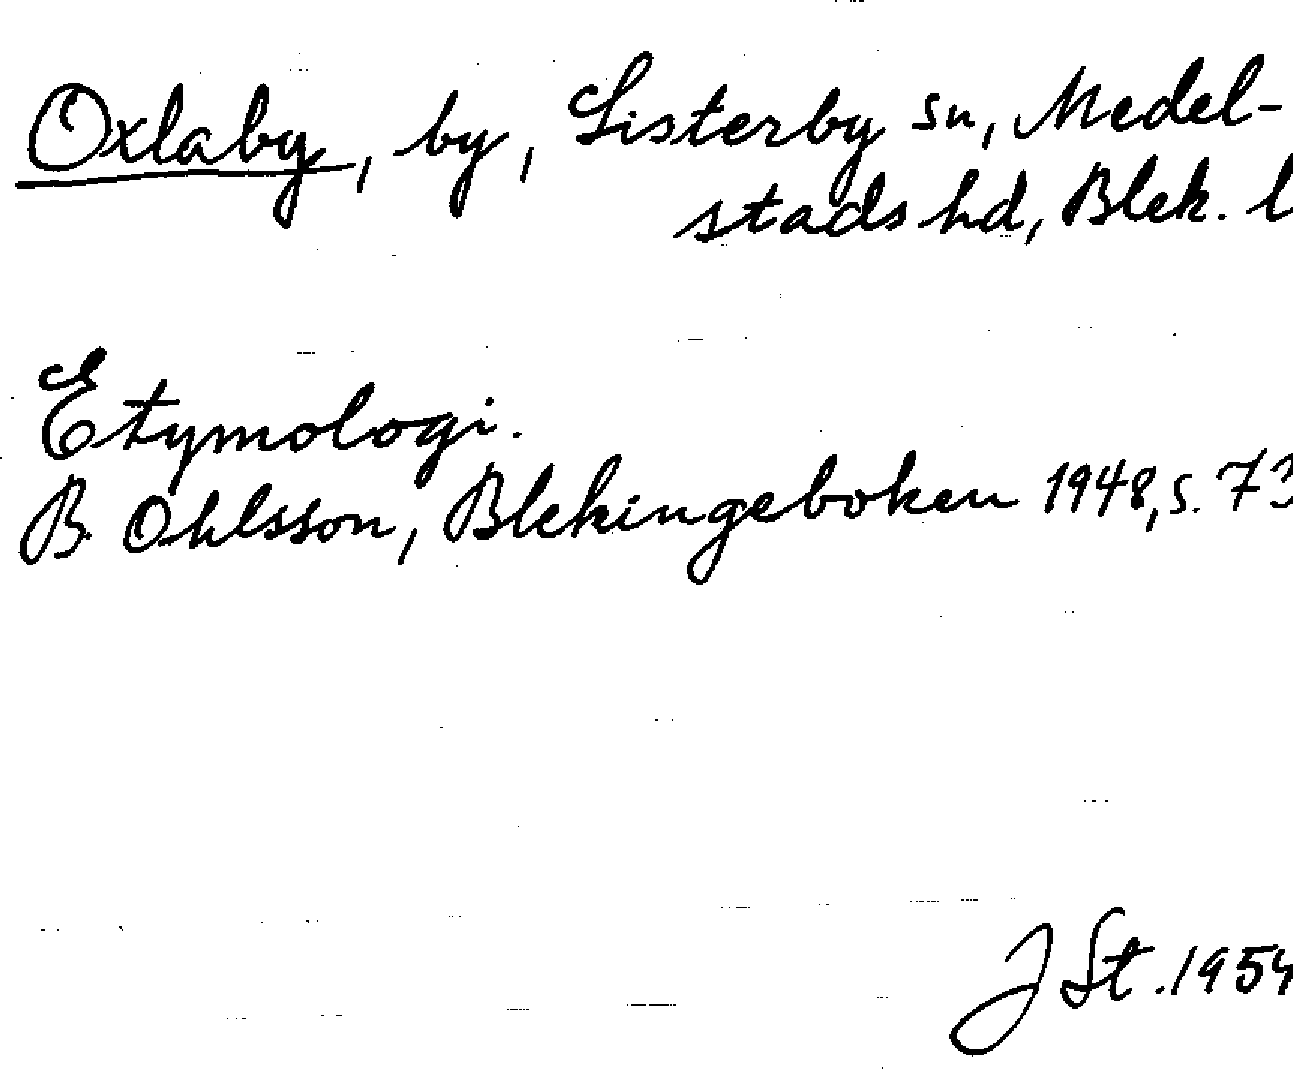 Oxlaby, by, Listerby sn, Medel-
stads hd, Blek. l
Etymologi.
B. Ohlsson, Blekingeboken 1948, s. 73
J St. 1954